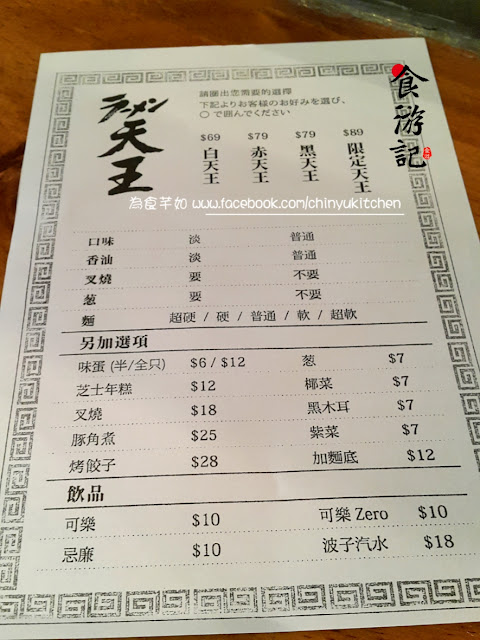 ラーメン
天王
請圈出您需要的選擇
下記よりお客様のお好みを選び、
○ で囲んでください
$69 $79 $79 $89
白天王 赤天王 黑天王 限定天王
食游記
為食芊如 www.facebook.com/chinyukitchen
口味 淡 普通
香油 淡 普通
叉燒 要 不要
葱 要 不要
麵 超硬 / 硬 / 普通 / 軟 / 超軟
另加選項
味蛋 (半/全只) $6 / $12 葱 $7
芝士年糕 $12 椰菜 $7
叉燒 $18 黑木耳 $7
豚角煮 $25 紫菜 $7
烤餃子 $28 加麵底 $12
飲品
可樂 $10 可樂 Zero $10
忌廉 $10 波子汽水 $18